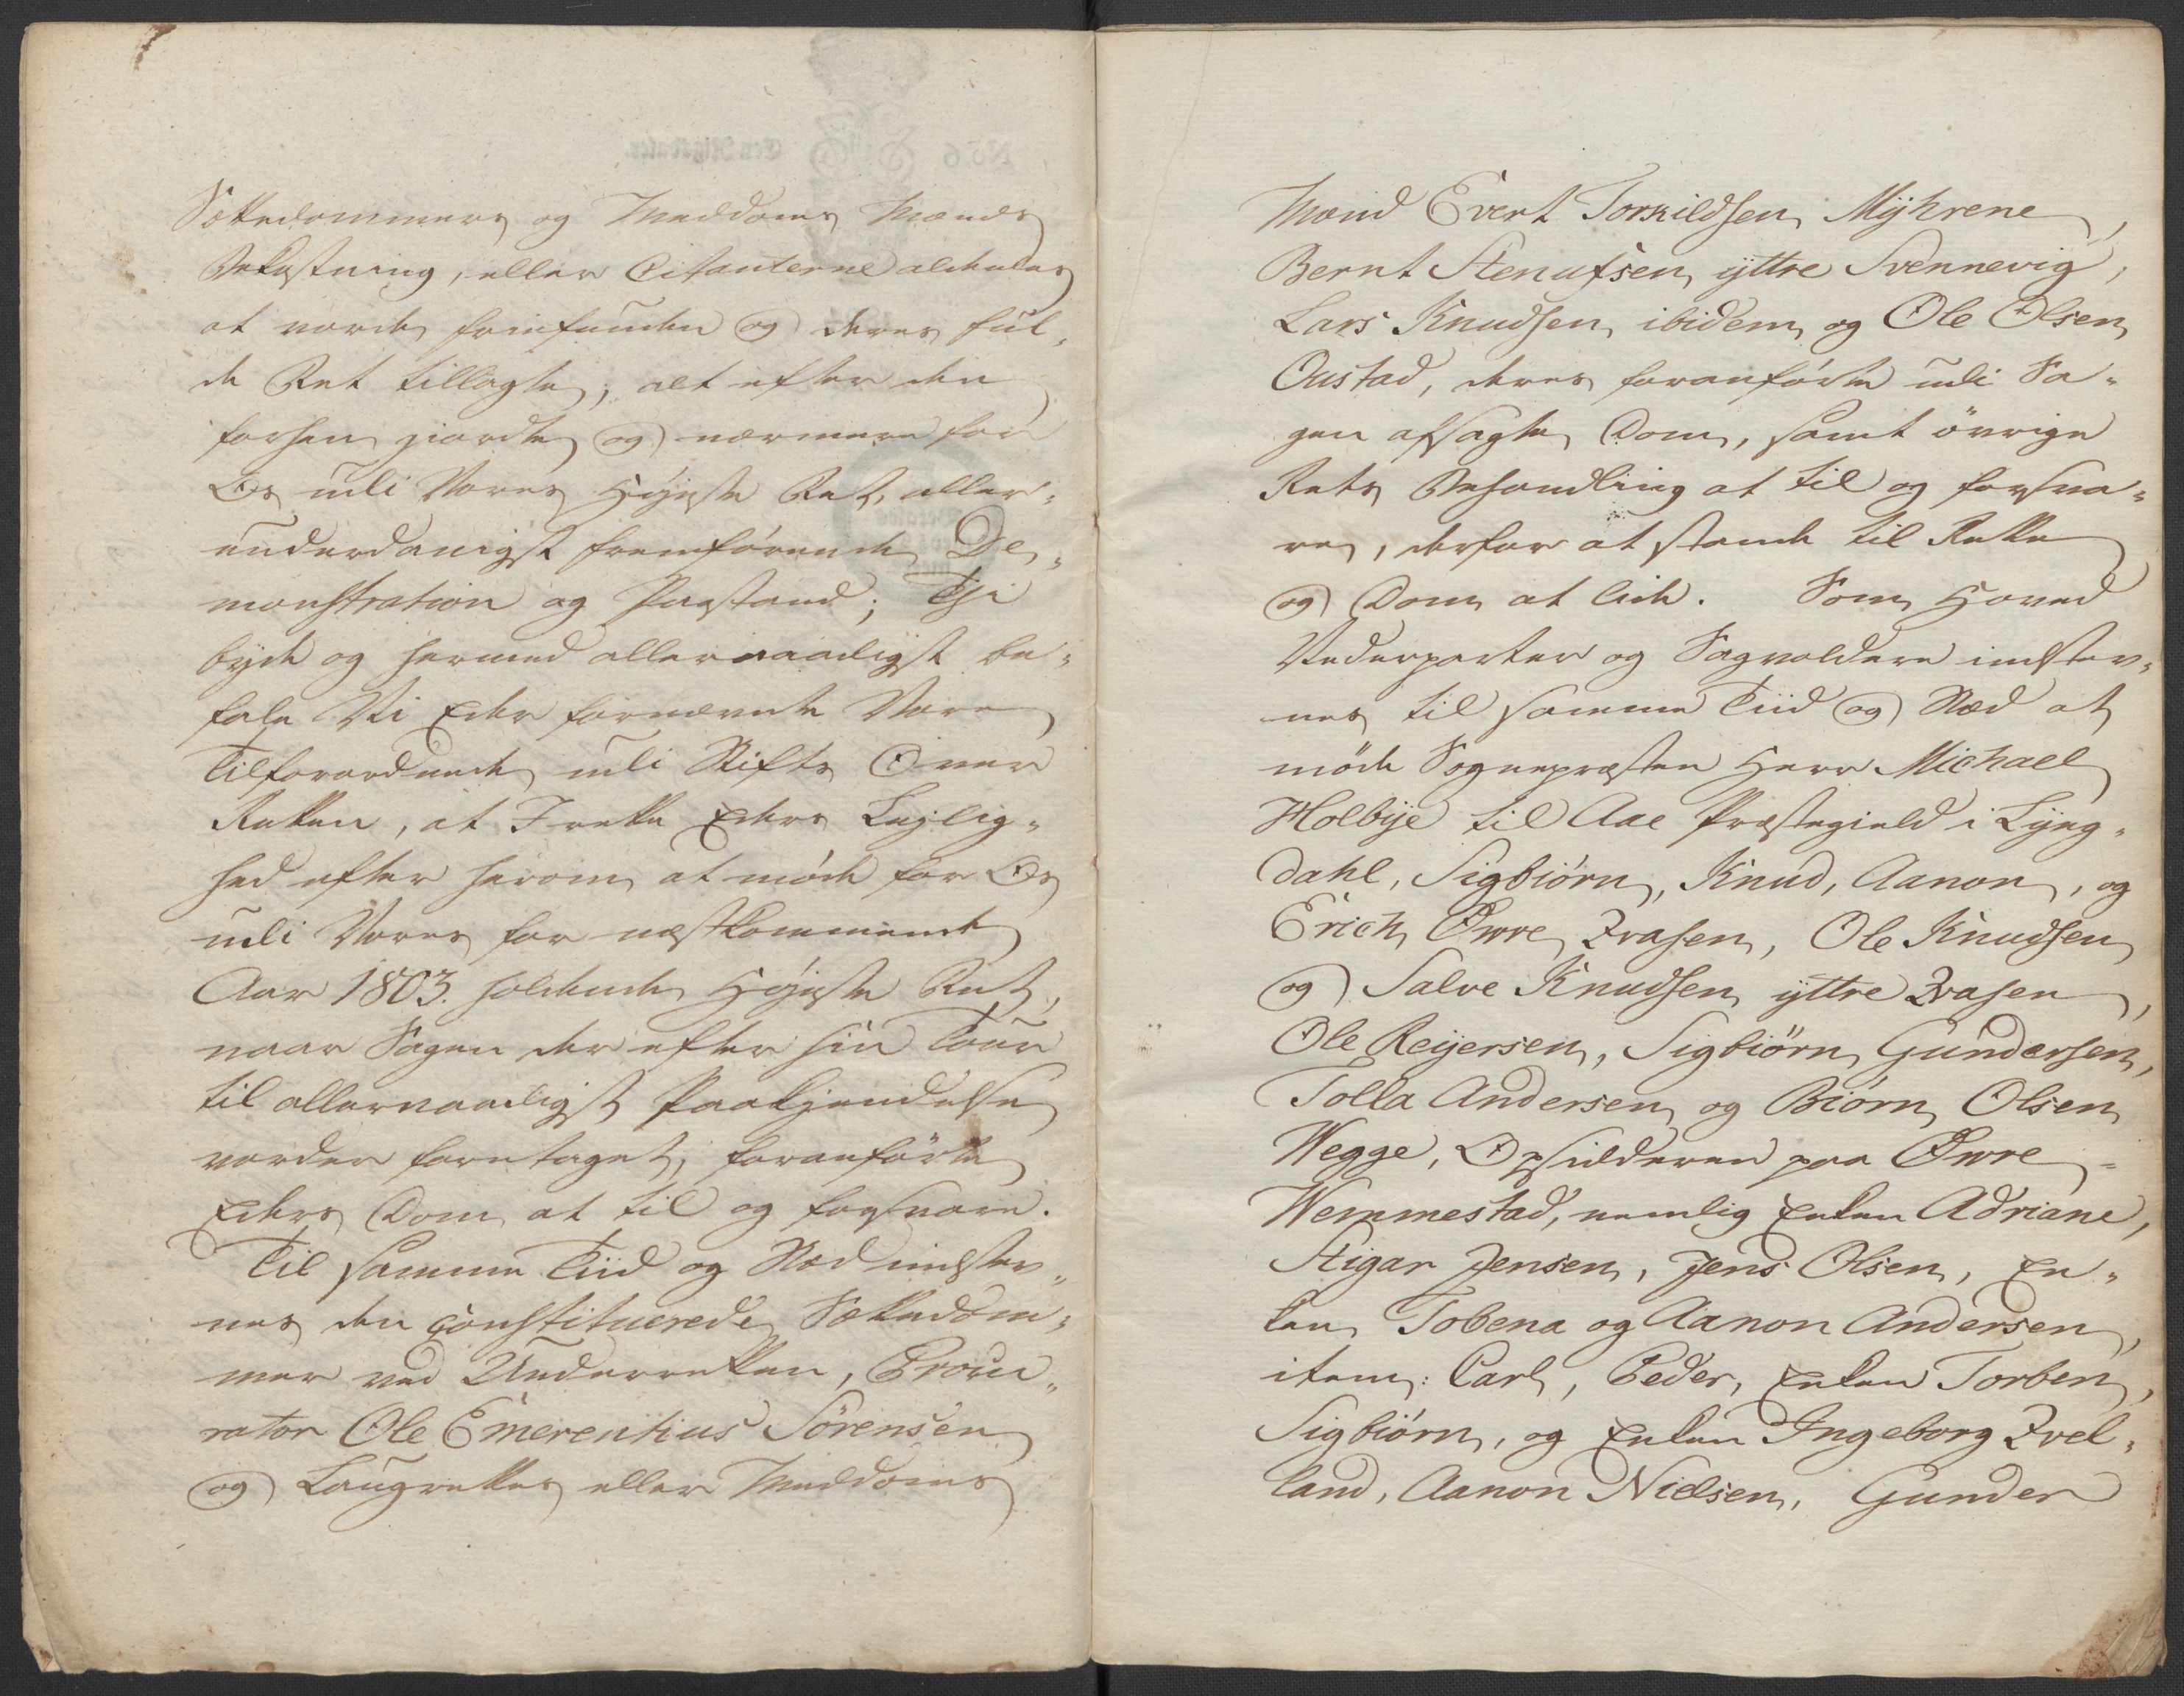 Sættedommers og Meddoms Mænds
Bekostning, eller Citanterne aldeles
at vorde friefunden og deres ful-
de Ret tillagte, alt efter den
forhen giordte og nærmere for
Os udi Vores Høyeste Ret, aller-
underdanigst fremførende De-
monstration og Paastand; Thi
byde og hermed allernaadigst be-
fale Vi Eder fornævnte Vore
Tilforordnede udi Stifts Over
Retten, at I rette Eders Lejlig-
hed efter herom at møde for Os
udi Vores for næstkommende
Aar 1803. holdende Høyeste Ret,
naar Sagen der efter sin Tour
til allernaadigst Paakjendelse
vorder foretaget, foranførte
Eders Dom at til og forsvare.
Til samme Tiid og Stæd indstev-
nes den constituerede Sættedom-
mer ved Underretten, Procu-
rator Ole Emerentius Sörensen
og Laugrettes eller Meddoms
Mænd Evert Torkildsen Mÿhrene,
Bernt Stenufsen ÿttre Svennevig,
Lars Knudsen ibidem og Ole Olsen
Oustad, deres foranførte udi Sa-
gen afsagte Dom, samt övrige
Rets Behandling at til og forsva-
re, derfor at stande til Rette
og Dom at lide. Som Hoved
Vederparter og Sagvoldere indstev-
nes til samme Tiid og Stæd at
møde Sognepræsten Herr Michael
Holbÿe til Aae Præstegield i Lÿng-
dahl, Sigbiörn, Knud, Aanon, og
Erich Øwre Qvasen, Ole Knudsen
og Salve Knudsen ÿttre Qvasen,
Ole Reijersen, Sigbiörn Gundersen,
Tolla Andersen og Biörn Olsen
Wegge, Opsidderen paa Øwre-
Wemmestad, nemlig Enken Adriane,
Stigar Jensen, Jens Olsen, En-
ken Tobena og Aanon Andersen,
item: Carl, Peder, Enken Torben,
Sigbiörn, og Enken Ingeborg Qvel-
land, Aanon Nielsen, Gunder